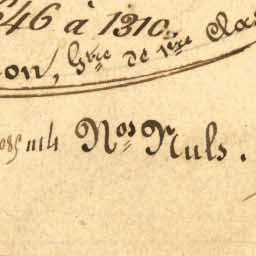 46 à 1310.
on, Gtre de 1ère Clas
Nos Nuls.